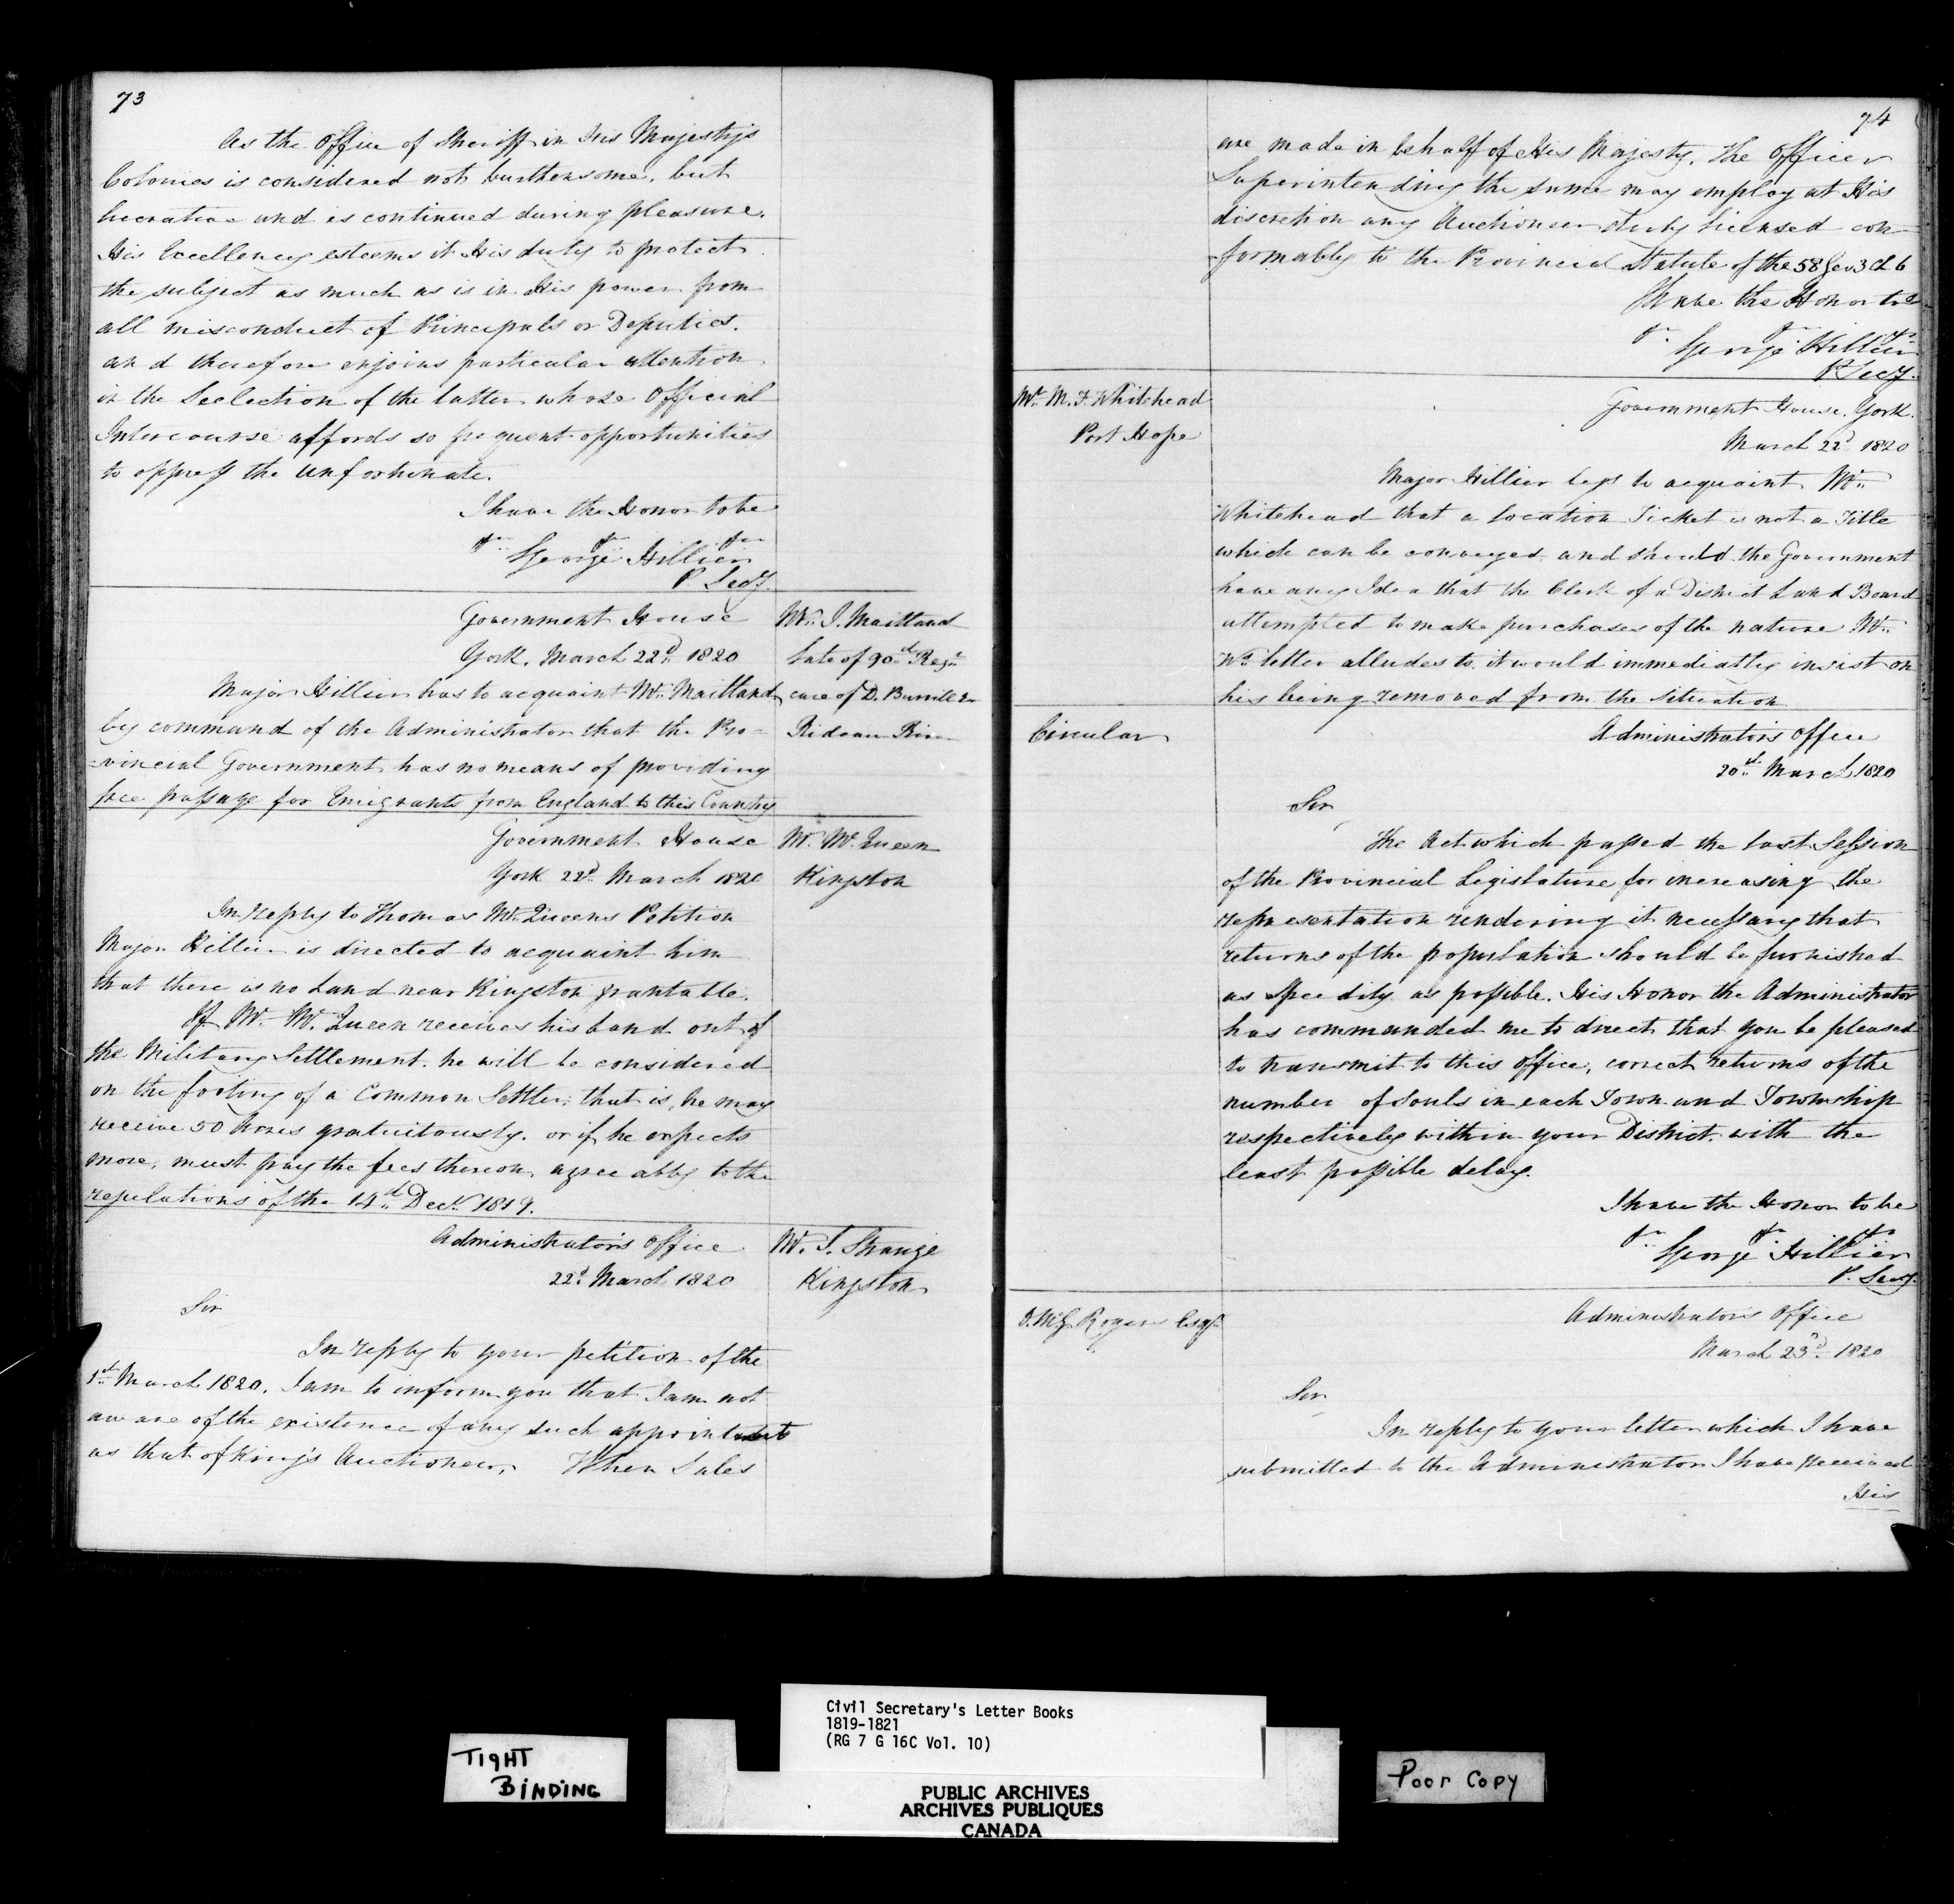 73
As the Office of Sheriff in His Majesty's
Colonies is considered not burthensome, but
lucrative and is continued during pleasure.
His Excellency esteems it His duty to protect
the subject as much as is in His power from
all misconduct of Principals or Deputies.
and therefore enjoins particular attention
in the Selection of the latter whose Official
Intercourse affords so frequent opportunities
to oppress the unfortunate.
I have the Honor to be
George Hillier
P. Secy.
Government House
York, March 22d. 1820
Mr. J. Maitland
late of 90th Regt
care of D. Burritt
Rideau River
Major Hillier has to acquaint Mr. Maitland
by command of the Administrator that the Pro=
=vincial Government has no means of providing
free passage for Emigrants from England to this Country
Government House
York 22d. March 1820
Mr. Mc.Queen
Kingston
In reply to Thomas Mc.Queens Petition
Major Hillier is directed to acquaint him
that there is no Land near Kingston grantable.
If Mr. Mc.Queen receives his land out of
the Military Settlement. he will be considered
on the footing of a Common Settler, that is, he may
receive 50 Acres gratuitously. or if he expects
more, must pay the fees thereon, agreeably to the
regulations of the 14th Decr. 1819.
Administrator's Office
22d March 1820
Mr. J. Strange
Kingston
Sir
In reply to your petition of the
1st March 1820. I am to inform you that I am not
aware of the existence of any such appointments
as that of King's Auctioneer, When Sales
74
are made in behalf of His Majesty, The Officer
Superintending the same may employ at His
discretion any Auctioneer duly licensed con-
formably to the Provincial Statute of the 58 Geo 3 Ch 6
I have the Honor to be
George Hillier
P. Secy.
Mr. M. F. Whitehead
Port Hope
Government House, York.
March 22d 1820
Major Hillier begs to acquaint Mr.
Whitehead that a Location Ticket is not a Title
which can be conveyed and should the Government
have any Idea that the Clerk of a District Land Board
attempted to make purchases of the nature Mr.
Ws. letter alludes to, it would immediatly insist on
his being removed from the situation
Circular
Administrator's Office
20th March 1820
Sir
The Act which passed the last Session
of the Provincial Legislature for increasing the
representation rendering it necessary that
returns of the population should be furnished
as speedily as possible. His Honor the Administrator
has commanded me to direct that you be pleased
to transmit to this Office, correct returns of the
number of Souls in each Town and Township
respectively within your District, with the
least possible delay.
I have the Honor to be
George Hillier
P. Secy.
D. McG. Rogers Esqr.
Administrator's Office
March 23d. 1820
Sir
In reply to your letter which I have
submitted to the Administrator I have received
His
Civil Secretary's Letter Books
1819-1821
(RG 7 G 16C Vol. 10)
TIGHT
BINDING
Poor Copy
PUBLIC ARCHIVES
ARCHIVES PUBLIQUES
CANADA